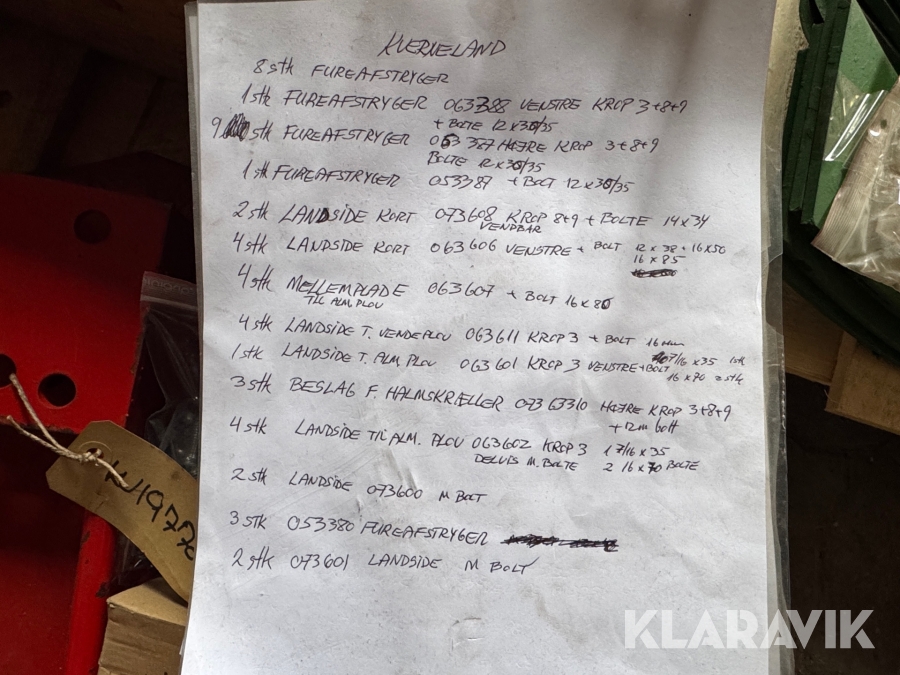 KVERNELAND
8 stk FUREAFSTRYGER
1 stk FUREAFSTRYGER 063388 VENSTRE KROP 3+8+9
+ BOLTE 12x30/35
9 stk FUREAFSTRYGER 063 327 HØJRE KROP 3+8+9
BOLTE 12x30/35
1 stk FUREAFSTRYGER 053387 + BOLT 12x30/35
2 stk LANDSIDE KORT 073608 KROP 8+9 + BOLTE 14x34
VENDBAR
4 stk LANDSIDE KORT 063606 VENSTRE + BOLT 12x38 + 16x50
16x85
4 stk MELLEMPLADE 063607 + BOLT 16x80
TIL ALM. PLOV
4 stk LANDSIDE T. VENDEPLOV 063611 KROP 3 + BOLT 16mm
1 stk LANDSIDE T. ALM. PLOV 063601 KROP 3 VENSTRE + BOLT 7/16x35 1stk
16x70 2stk
3 stk BESLAG F. HALMSKRÆLLER 07363310 HØJRE KROP 3+8+9
+ 12m bolt
4 stk LANDSIDE TIL ALM. PLOV 063602 KROP 3 1 7/16x35
DELVIS M. BOLTE 2 16x70 BOLTE
2 stk LANDSIDE 073600 M BOLT
3 stk 053380 FUREAFSTRYGER
2 stk 073601 LANDSIDE M BOLT
KLARAVIK